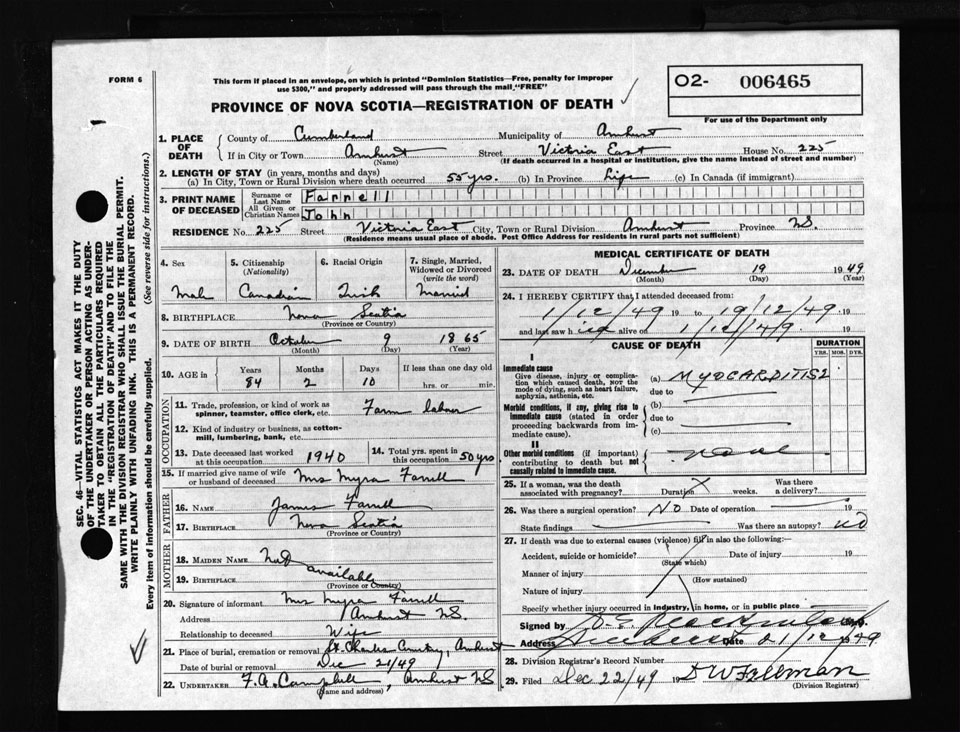 FORM 6
This form if placed in an envelope, on which is printed "Dominion Statistics—Free, penalty for improper
use $300," and properly addressed will pass through the mail "FREE"
O2- 006465
For use of the Department only
PROVINCE OF NOVA SCOTIA—REGISTRATION OF DEATH
1. PLACE OF DEATH
County of Cumberland Municipality of Amherst
If in City or Town Amherst Street Victoria East House No. 225
(Name) (If death occurred in a hospital or institution, give the name instead of street and number)
2. LENGTH OF STAY (in years, months and days)
(a) In City, Town or Rural Division where death occurred 55 yrs. (b) In Province Life (c) In Canada (if immigrant)
3. PRINT NAME OF DECEASED
Surname or Last Name Farrell
All Given or Christian Names John
RESIDENCE No. 225 Street Victoria East City, Town or Rural Division Amherst Province N.S.
(Residence means usual place of abode. Post Office Address for residents in rural parts not sufficient)
4. Sex Male
5. Citizenship (Nationality) Canadian
6. Racial Origin Irish
7. Single, Married, Widowed or Divorced (write the word) Married
8. BIRTHPLACE Nova Scotia
(Province or Country)
9. DATE OF BIRTH October 9 1865
(Month) (Day) (Year)
10. AGE in Years 84 Months 2 Days 10 If less than one day old hrs. or min.
OCCUPATION
11. Trade, profession, or kind of work as spinner, teamster, office clerk, etc. Farm labour
12. Kind of industry or business, as cotton-mill, lumbering, bank, etc.
13. Date deceased last worked at this occupation 1940
14. Total yrs. spent in this occupation 50 yrs
15. If married give name of wife or husband of deceased Mrs Myra Farrell
FATHER
16. NAME James Farrell
17. BIRTHPLACE Nova Scotia
(Province or Country)
MOTHER
18. MAIDEN NAME Not available
19. BIRTHPLACE
(Province or Country)
20. Signature of informant Mrs Myra Farrell
Address Amherst N.S.
Relationship to deceased Wife
21. Place of burial, cremation or removal St. Charles Cemetery, Amherst
Date of burial or removal Dec 21/49
22. UNDERTAKER F.A. Campbell, Amherst NS
(name and address)
MEDICAL CERTIFICATE OF DEATH
23. DATE OF DEATH December 19 1949
(Month) (Day) (Year)
24. I HEREBY CERTIFY that I attended deceased from:
1/12/49 19 to 19/12/49 19
and last saw h alive on 19
CAUSE OF DEATH
DURATION
YRS. MOS. DYS.
I
Immediate cause
Give disease, injury or complication which caused death, NOT the mode of dying, such as heart failure, asphyxia, asthenia, etc.
(a) MYOCARDITIS
due to
Morbid conditions, if any, giving rise to immediate cause (stated in order proceeding backwards from immediate cause.
(b)
due to
(c)
II
Other morbid conditions (if important) contributing to death but not causally related to immediate cause.
none
25. If a woman, was the death associated with pregnancy? Duration weeks. Was there a delivery?
26. Was there a surgical operation? NO Date of operation 19
State findings Was there an autopsy? NO
27. If death was due to external causes (violence) fill in also the following:—
Accident, suicide or homicide? Date of injury 19
(State which)
Manner of injury
(How sustained)
Nature of injury
Specify whether injury occurred in industry, in home, or in public place
Signed by
Address Amherst Date 21/12 1949
28. Division Registrar's Record Number
29. Filed Dec 22/49 19
(Division Registrar)
SEC. 46—VITAL STATISTICS ACT MAKES IT THE DUTY
OF THE UNDERTAKER OR PERSON ACTING AS UNDER-
TAKER TO OBTAIN ALL THE PARTICULARS REQUIRED
IN THE "REGISTRATION OF DEATH" AND TO FILE THE
SAME WITH THE DIVISION REGISTRAR WHO SHALL ISSUE THE BURIAL PERMIT.
WRITE PLAINLY WITH UNFADING INK. THIS IS A PERMANENT RECORD.
Every item of information should be carefully supplied. (See reverse side for instructions.)